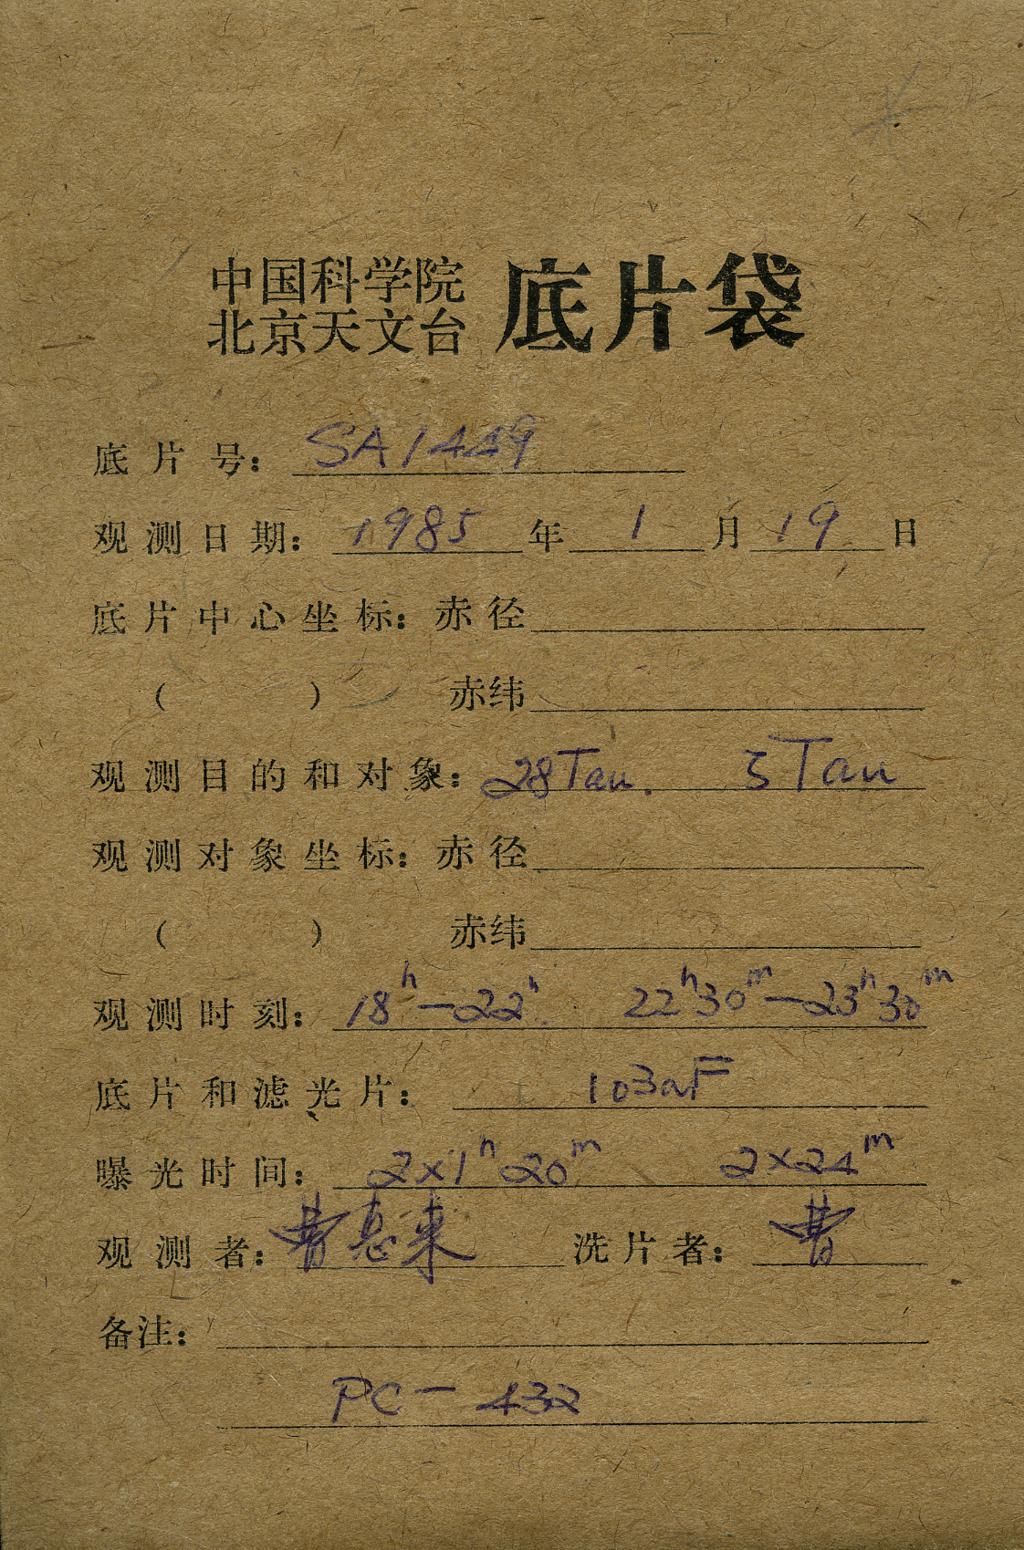 中国科学院
北京天文台 底片袋
底片号: SA1449
观测日期: 1985年1月19日
底片中心坐标: 赤径
( ) 赤纬
观测目的和对象: 28Tau. ζ Tau
观测对象坐标: 赤径
( ) 赤纬
观测时刻: 18h—22h. 22h30m—23h30m
底片和滤光片: 103aF
曝光时间: 2×1h20m 2×24m
观测者: 曹惠来 洗片者: 曹
备注:
PC-432